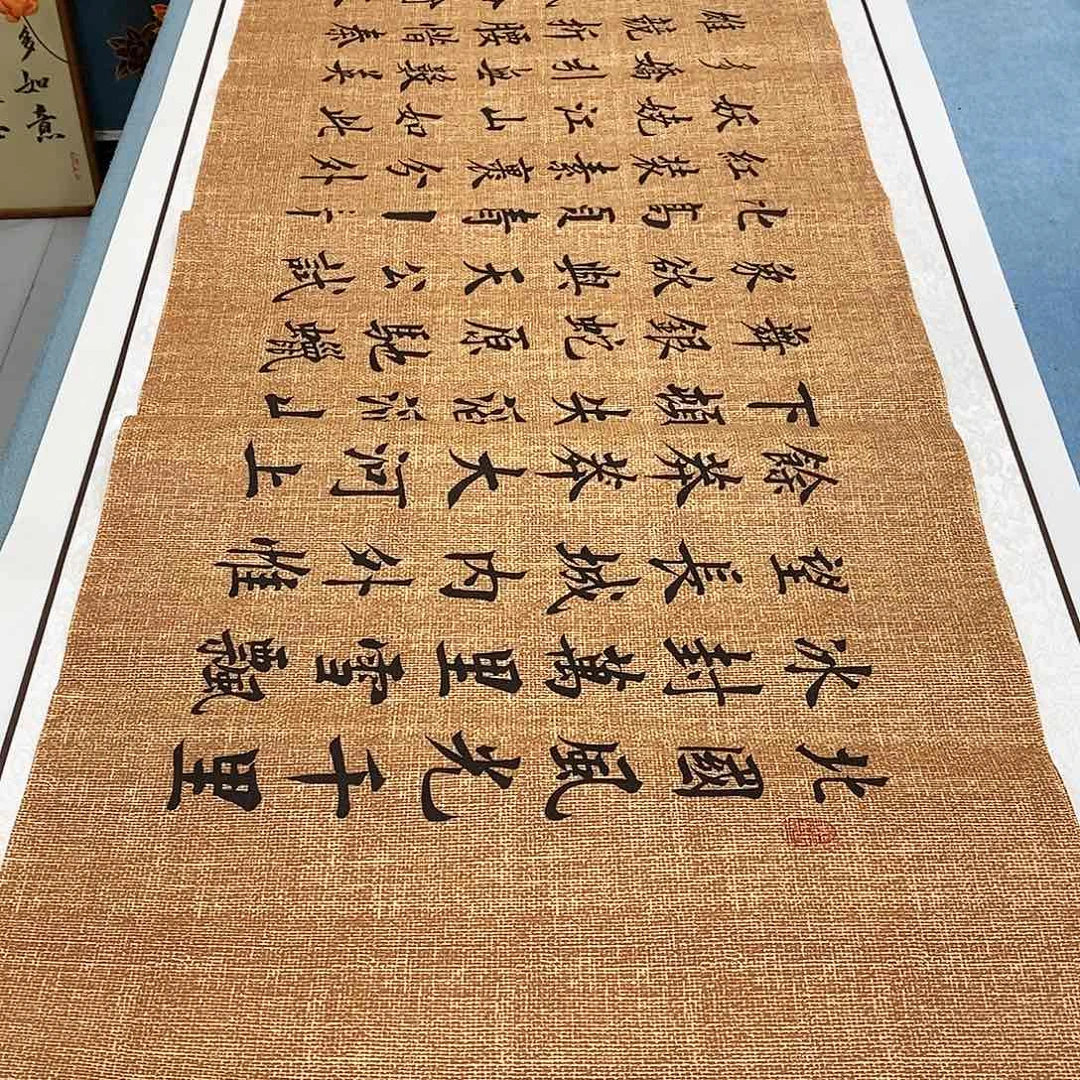 北國風光千里
冰封萬里雪飄
望長城內外惟
餘莽莽大河上
下頓失滔滔山
舞銀蛇原馳蠟
象欲與天公試
比高須晴
紅裝素裹分外
妖嬈江山如此
多嬌引無數英
雄競折腰惜秦
多如意